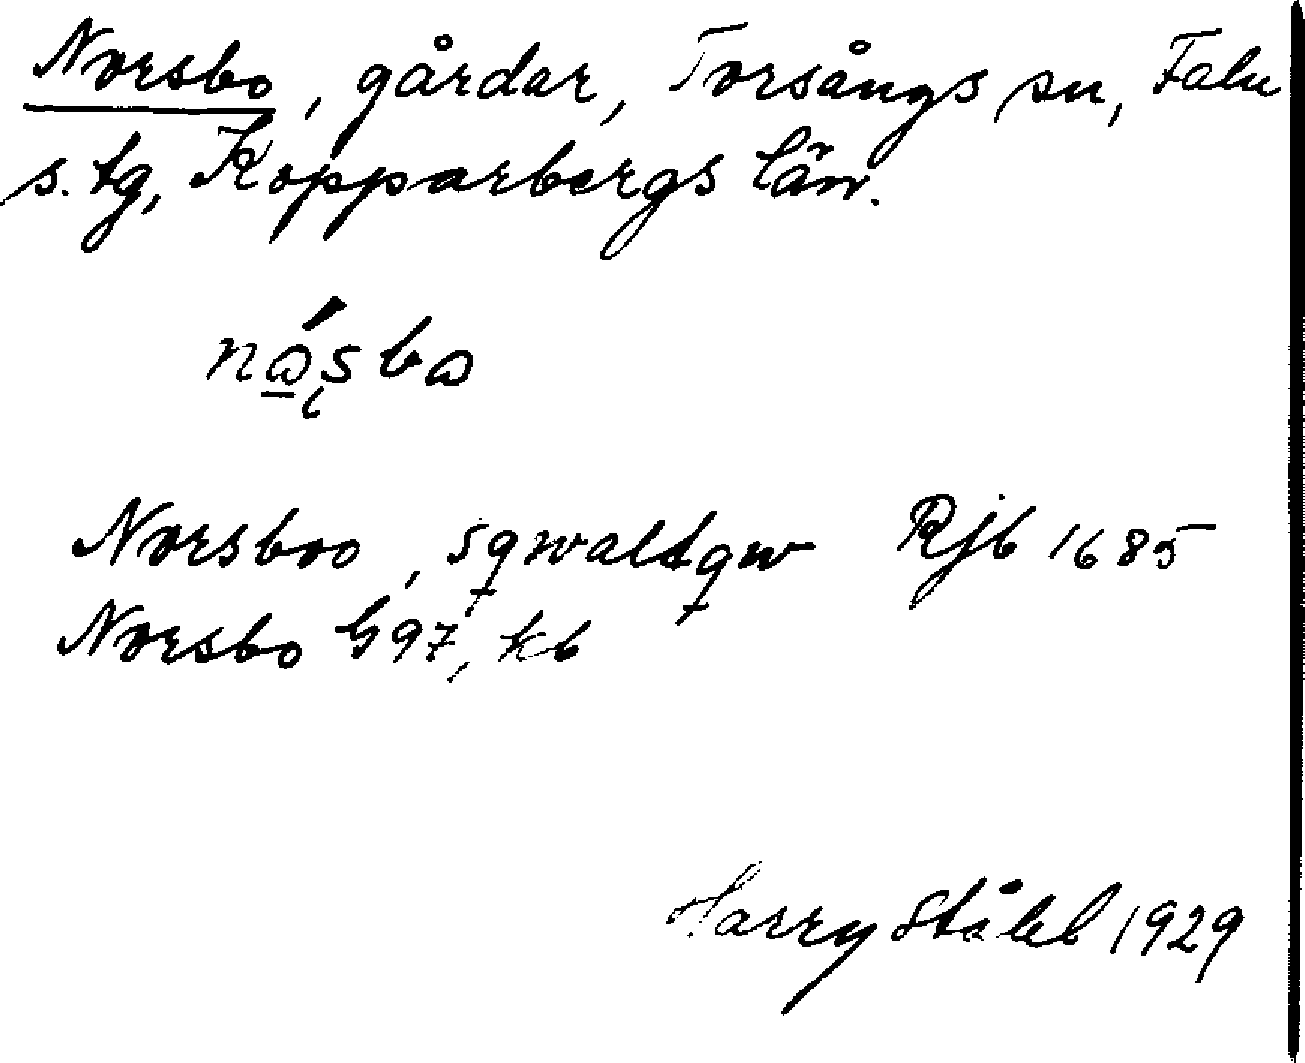 Norsbo, gårdar, Torsångs sn, Falu
s. tg, Kopparbergs län.
Norsboo, sqwaltqw Rjb 1685
Norsbo G97, kb
Harry Ståhl 1929